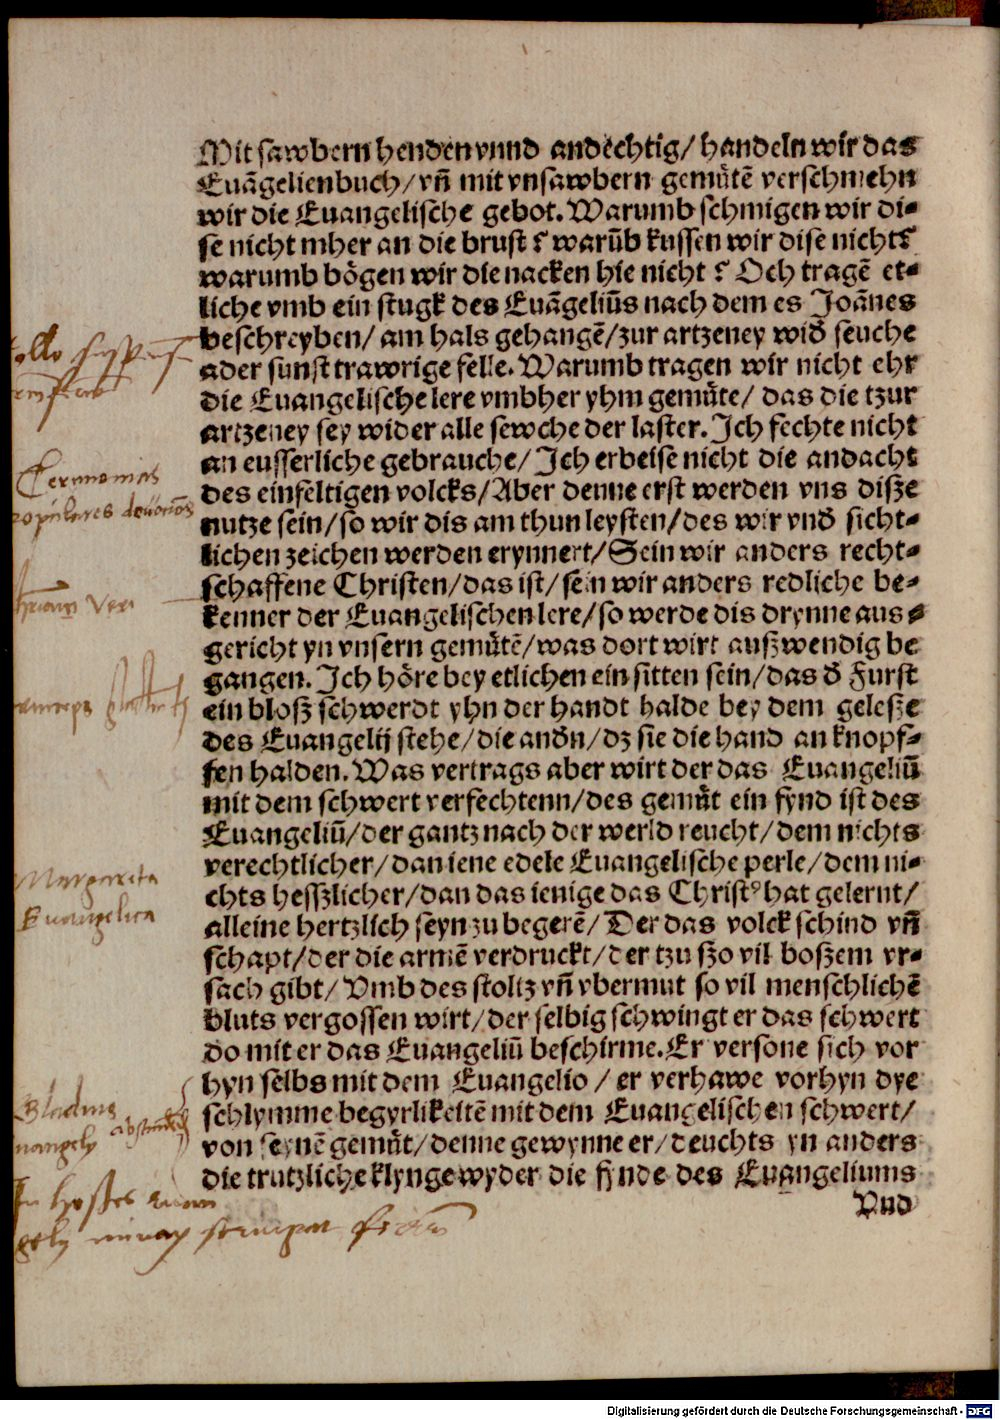 Mit sawbern henden vnnd andechtig/ handeln wir das
Euãgelienbuch/ vñ mit vnsawbern gemütẽ verschmehn
wir die Euangelische gebot. Warumb schmigen wir di⸗
se nicht mher an die brust ? warũb kussen wir dise nicht?
warumb bögen wir die nacken hie nicht ? Och tragẽ et⸗
liche vmb ein stugk des Euãgeliũs nach dem es Joãnes
beschreyben/ am hals gehangẽ/ zur artzeney wid̕ seuche
ader sunst trawrige felle. Warumb tragen wir nicht ehr
die Euangelische lere vmbher yhm gemüte/ das die tzur
artzeney sey wider alle sewche der laster. Ich fechte nicht
an eusserliche gebrauche/ Ich erbeise nicht die andacht
des einfeltigen volcks/ Aber denne erst werden vns diße
nutze sein/ so wir dis am thun leysten/ des wir vnd̕ sicht⸗
lichen zeichen werden erynnert/ Sein wir anders recht⸗
schaffene Christen/ das ist/ sein wir anders redliche be⸗
kenner der Euangelischen lere/ so werde dis drynne aus⸗
gericht yn vnsern gemütẽ/ was dort wirt außwendig be
gangen. Ich höre bey etlichen ein sitten sein/ das d̕ Furst
ein bloß schwerdt yhn der handt halde bey dem geleße
des Euangelij stehe/ die and̕n/ dz sie die hand an knopf⸗
fen halden. Was vertrags aber wirt der das Euangeliũ
mit dem schwert verfechtenn/ des gemüt ein fynd ist des
Euangeliũ/ der gantz nach der werld reucht/ dem nichts
verechtlicher/ dan iene edele Euangelische perle/ dem ni⸗
chts hesszlicher/ dan das ienige das Christꝰ hat gelernt/
alleine hertzlich seyn zu begerẽ/ Der das volck schind vñ
schapt/ der die armẽ verdruckt/ der tzu ßo vil boßem vr⸗
sach gibt/ Vmb des stoltz vñ vbermut so vil menschlichẽ
bluts vergossen wirt/ der selbig schwingt er das schwert
do mit er das Euangeliũ beschirme. Er versone sich vor
hyn selbs mit dem Euangelio / er verhawe vorhyn dye
schlymme begyrlikeitẽ mit dem Euangelischen schwert/
von seynẽ gemüt/ denne gewynne er/ deuchts yn anders
die trutzliche klynge wyder die fynde des Euangeliums
Vnd
Ceremonias
populares
Veri
Margarita
Euangelica
Gladius
In hostes
Digitalisierung gefördert durch die Deutsche Forschungsgemeinschaft - DFG